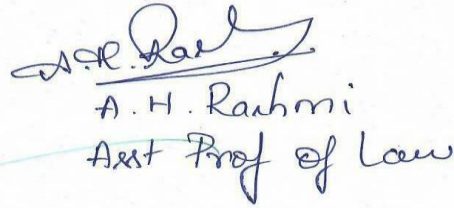 A.H. Rash
A. H. Rashmi
Asst Prof of Law